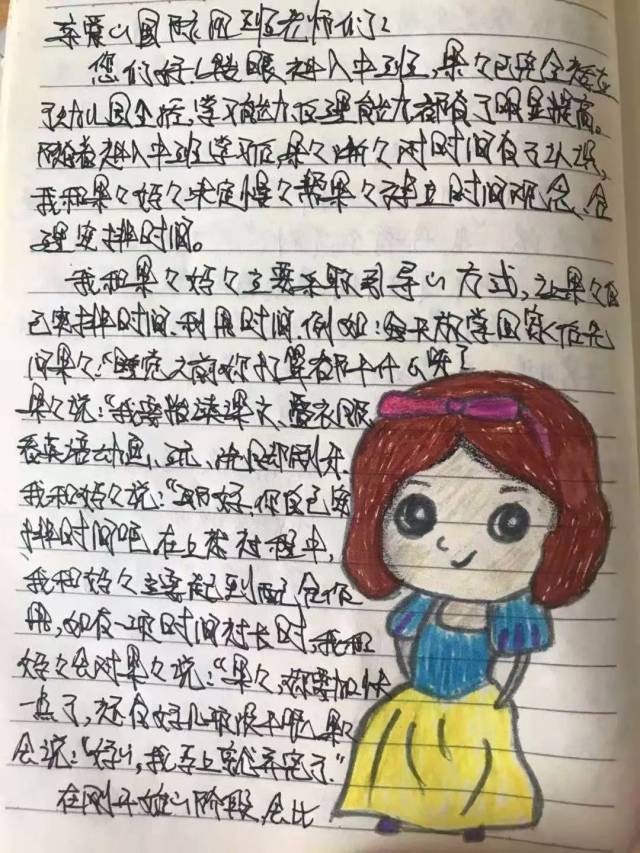 亲爱的国际四班老师们：
您们好！转眼进入中班，果果已完全适应
了幼儿园生活，学习能力及理解能力都有了明显提高。
随着进入中班学习后，果果渐渐对时间有了认识，
我和果果妈妈决定慢慢帮果果建立时间观念、合
理安排时间。
我和果果妈妈主要采取引导的方式，让果果自
己安排时间、利用时间。例如：每天放学回家后先
问果果："睡觉之前你打算都干什么呢？
果果说："我要指读课文、叠衣服、
看英语动画、玩、洗脚刷牙。
我和妈妈说："那好，你自己安
排时间吧。在上述过程中，
我和妈妈主要起到配合作
用，如有一项时间过长时，我和
妈妈会对果果说："果果，你要加快
一点了，还有好几项没干呢。果果
会说："好的，我马上就弄完了。"
在刚开始的阶段，会比